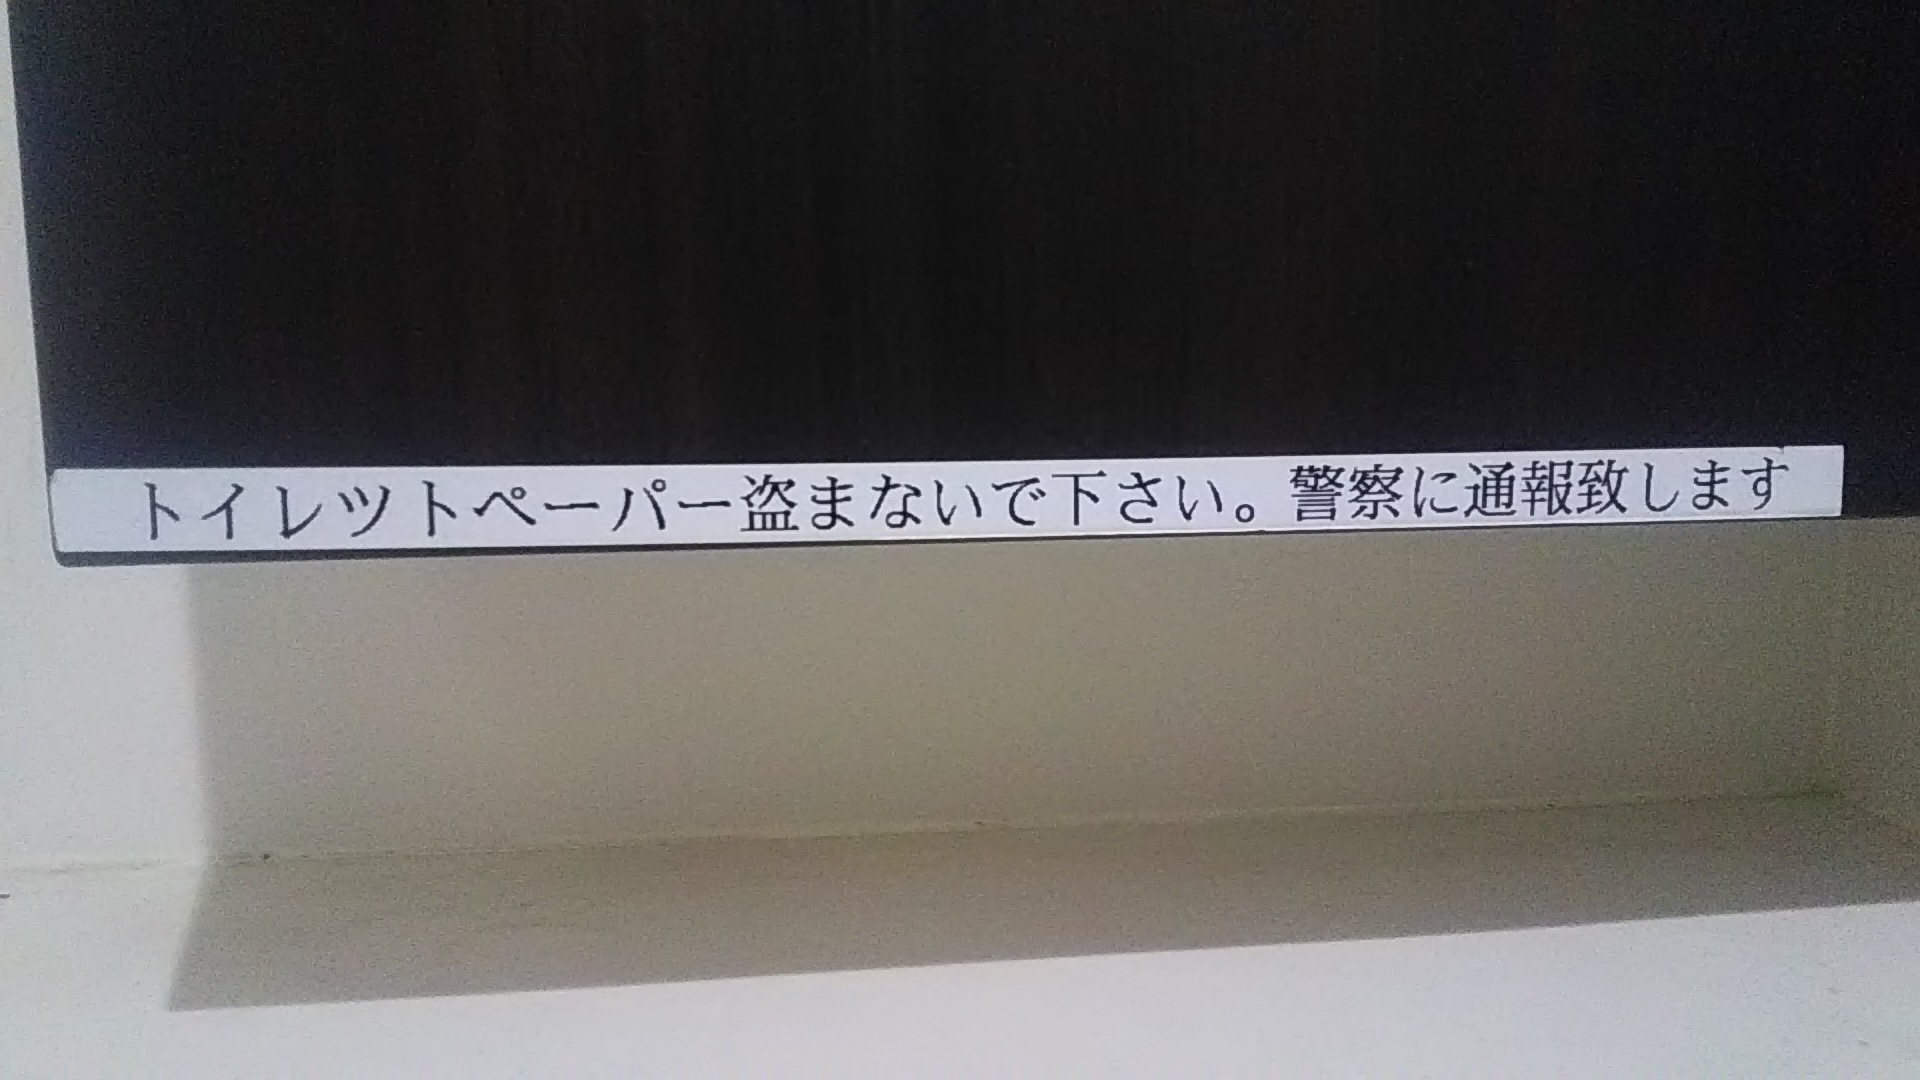 トイレツトペーパー盗まないで下さい。警察に通報致します